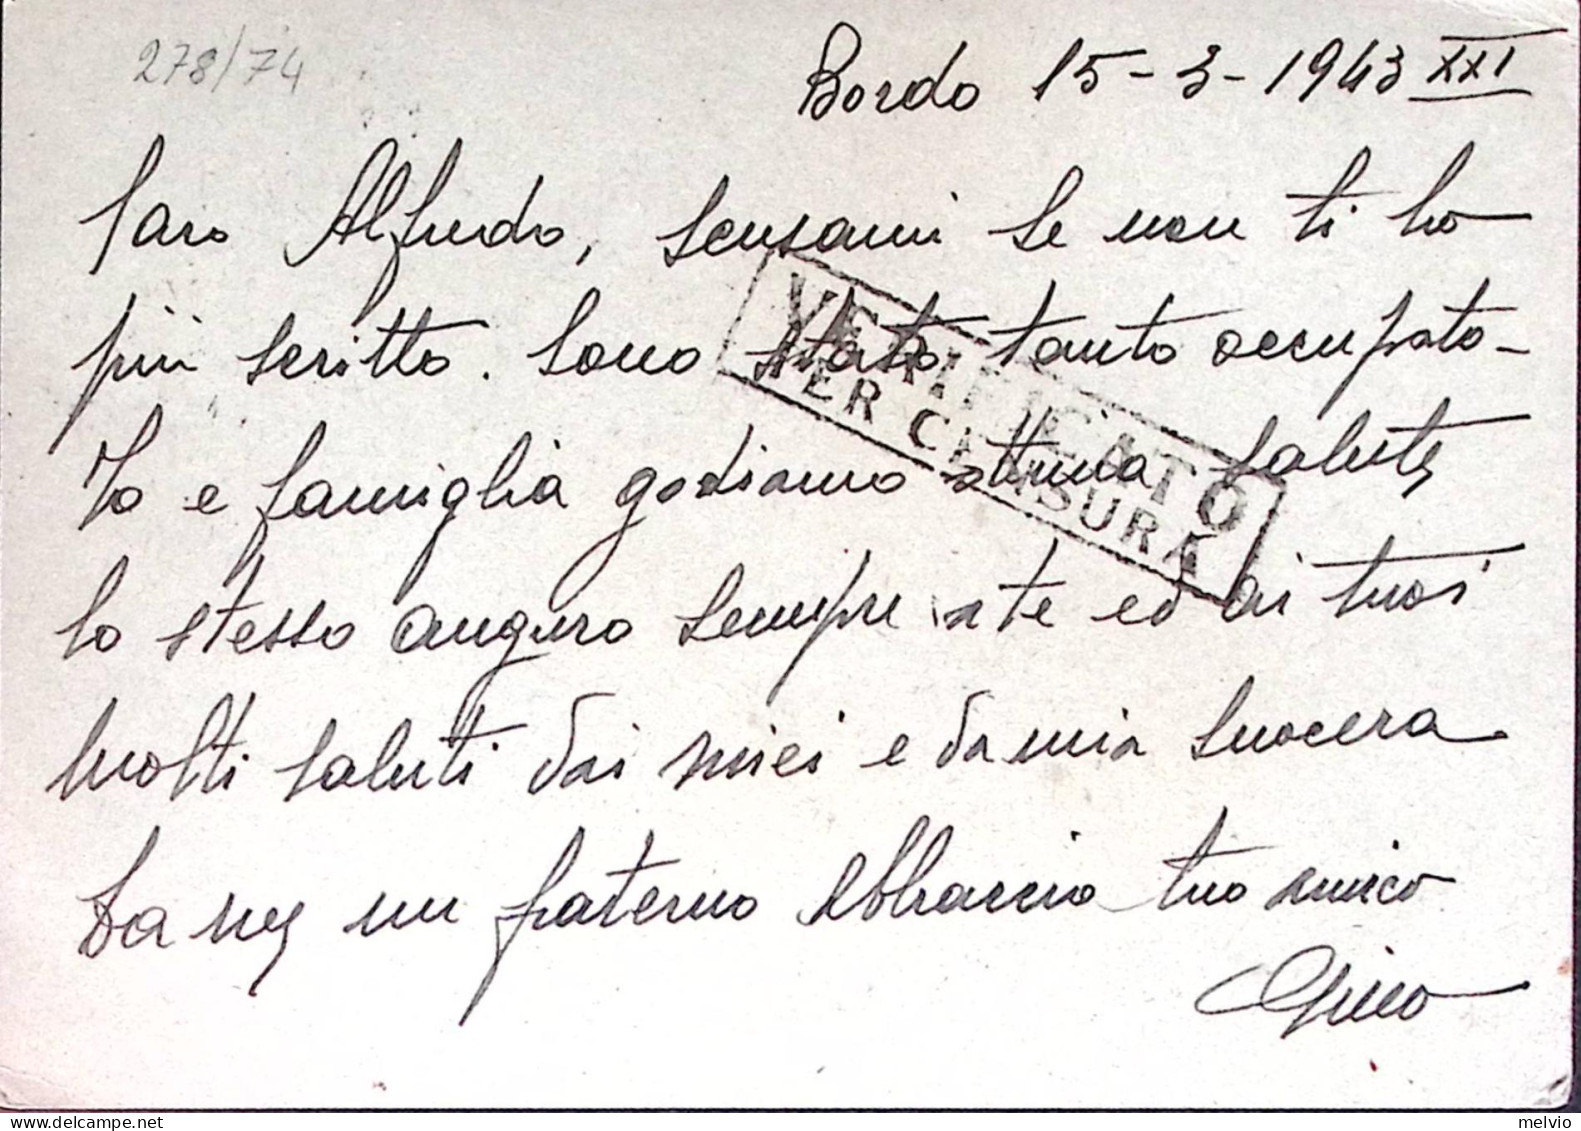 278/74
Bordo 15-3-1943 XXI
Caro Alfredo, scusami se non ti ho
più scritto. Sono stato tanto occupato-
VERIFICATO
PER CENSURA
Io e famiglia godiamo ottima salute
lo stesso auguro sempre a te ed ai tuoi
Molti saluti dai miei e da mia suocera
Da me un fraterno abbraccio tuo amico
Gino
melvio